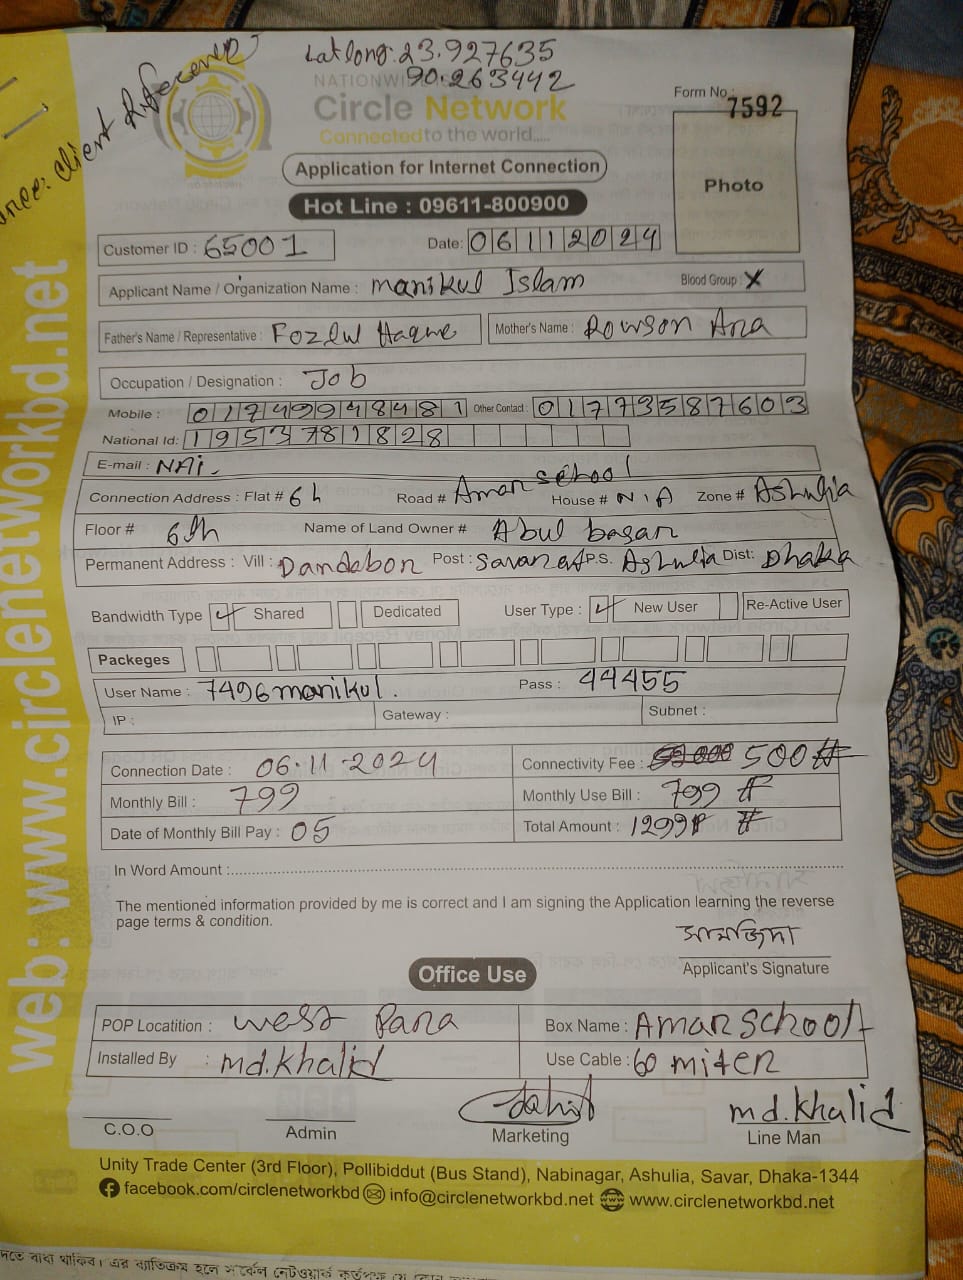 Client Reference
Latlong: 23.927635
90.263442
NATIONWIDE
Circle Network
Connected to the world.....
Form No : 7592
Photo
Application for Internet Connection
Hot Line : 09611-800900
Customer ID : 65001 Date: 06112024
Applicant Name / Organization Name : Manikul Islam Blood Group : X
Father's Name / Representative : Fozlul Haque Mother's Name : Rowson Ara
Occupation / Designation : Job
Mobile : 01749948481 Other Contact : 01773587603
National Id: 1953781828
E-mail : NAi
Connection Address : Flat # 6 h Road # Aman school House # N/A Zone # Ashulia
Floor # 6th Name of Land Owner # Abul basar
Permanent Address : Vill : Dandabon Post : Savar P.S. Ashulia Dist: Dhaka
Bandwidth Type Shared Dedicated User Type : New User Re-Active User
Packeges
User Name : 7496manikul. Pass : 44455
IP : Gateway : Subnet :
Connection Date : 06.11.2024 Connectivity Fee : 500
Monthly Bill : 799 Monthly Use Bill : 799
Date of Monthly Bill Pay : 05 Total Amount : 1299
In Word Amount :
The mentioned information provided by me is correct and I am signing the Application learning the reverse
page terms & condition.
Applicant's Signature
Office Use
POP Locatition : West Para Box Name : Aman school
Installed By : md.khalid Use Cable : 60 miter
md.khalid
C.O.O Admin Marketing Line Man
Unity Trade Center (3rd Floor), Pollibiddut (Bus Stand), Nabinagar, Ashulia, Savar, Dhaka-1344
facebook.com/circlenetworkbd info@circlenetworkbd.net www.circlenetworkbd.net
web: www.circlenetworkbd.net
দিতে বাধ্য থাকিব। এর ব্যতিক্রম হলে সার্কেল নেটওয়ার্ক কর্তৃপক্ষ যে কোন